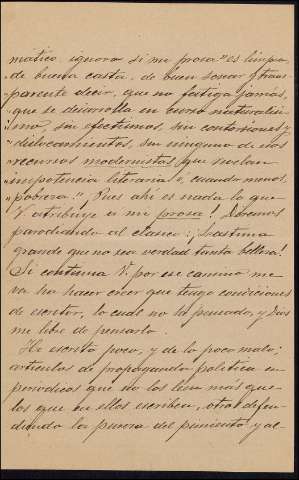 mático, ignora si mi prosa "es limpia,
"de buena casta, de buen sonar y trans-
"parente decir, que no fatiga jamás,
"que se desarrolla en curso naturalísi-
"mo, sin efectismos, sin contorsiones y
"dislocamientos, sin ninguno de esos
"recursos modernistas que revelan
"impotencia literaria ó, cuando menos,
"pobreza." Pues ahí es nada lo que
V. atribuye á mi prosa! Digamos
parodiando al clásico: ¡Lástima
grande que no sea verdad tanta belleza!
Si continua V. por ese camino me
va ha hacer creer que tengo condiciones
de escritor, lo cual no he pensado, y Dios
me libre de pensarlo.
He escrito poco, y de lo poco malo;
artículos de propaganda política en
periódicos que no los leen más que
los que en ellos escriben, otros defen-
diendo la pureza del pimiento y al-